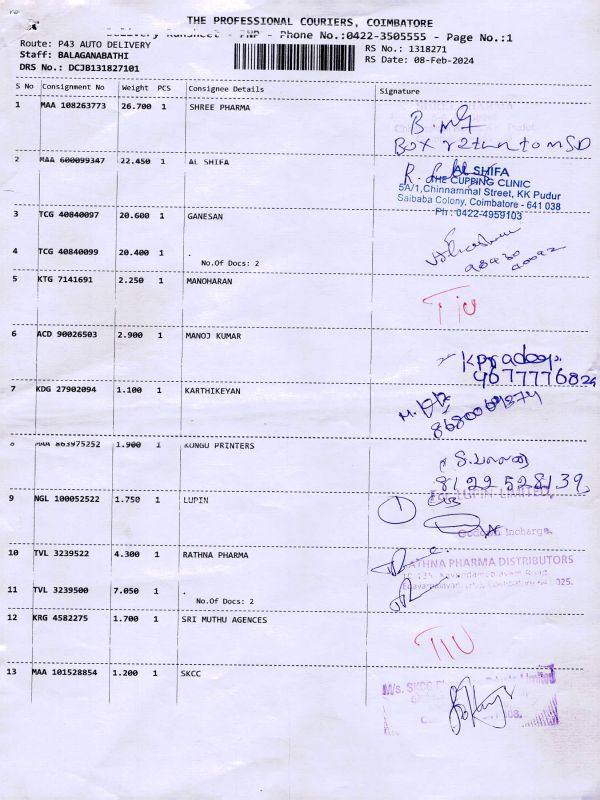 THE PROFESSIONAL COURIERS, COIMBATORE
Delivery Runsheet - PNP - Phone No.:0422-3505555 - Page No.:1
Route: P43 AUTO DELIVERY
RS No.: 1318271
Staff: BALAGANABATHI
RS Date: 08-Feb-2024
DRS No.: DCJB131827101
S No Consignment No Weight PCS Consignee Details Signature
1 MAA 108263773 26.700 1 SHREE PHARMA
Box r2turn to MSD
2 MAA 600099347 22.450 1 AL SHIFA
AL SHIFA
THE CUPPING CLINIC
5A/1,Chinnammal Street, KK Pudur
Saibaba Colony, Coimbatore - 641 038
Ph : 0422-4959103
3 TCG 40840097 20.600 1 GANESAN
4 TCG 40840099 20.400 1 .
No.Of Docs: 2
98430
90092
5 KTG 7141691 2.250 1 MANOHARAN
TIU
6 ACD 90026503 2.900 1 MANOJ KUMAR
Kpradeep
7 KDG 27902094 1.100 1 KARTHIKEYAN
8 MAA 863975252 1.900 1 KONGU PRINTERS
8122528139
9 NGL 100052522 1.750 1 LUPIN
LUPIN LIMITED
1
Godown Incharge
10 TVL 3239522 4.300 1 RATHNA PHARMA
RATHNA PHARMA DISTRIBUTORS
11 TVL 3239500 7.050 1 .
No.Of Docs: 2
12 KRG 4582275 1.700 1 SRI MUTHU AGENCES
TIU
13 MAA 101528854 1.200 1 SKCC
M/s. SKCC